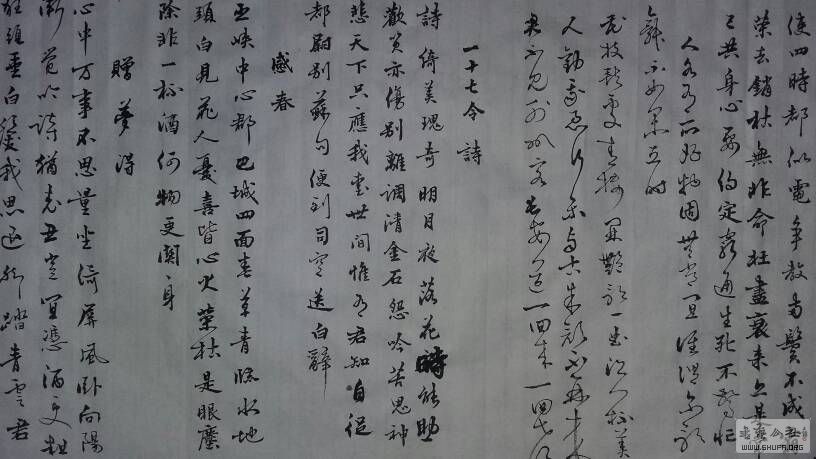 使四時都似電爭教兩鬢不成
榮去銷枯無非命壯盡衰來亦是
已共身心要約定窮通生死不驚忙
人各有所好物固無常宜誰謂爾能
舞不如閑立時
花枝缺處青樓開艷歌一曲酒一杯美
人勸我急行樂自古朱顏不再來
君不見外州客長安道一回來一回老
一十七令詩
詩綺美瑰奇明月夜落花時能助
歡笑亦傷別離調清金石怨吟苦鬼神
悲天下只應我愛世間惟有君知自從
都尉別蘇句便到司空送白辭
感春
巫峽中心郡巴城四面春草青臨水地
頭白見花人憂喜皆心火榮枯是眼塵
除非一杯酒何物更關身
贈夢得
心中万事不思量坐倚屏風臥向陽
漸覺詠詩猶老丑豈宜憑酒更粗
狂頭垂白髮我思退腳踏青雲君
WWW.SHUFA.ORG